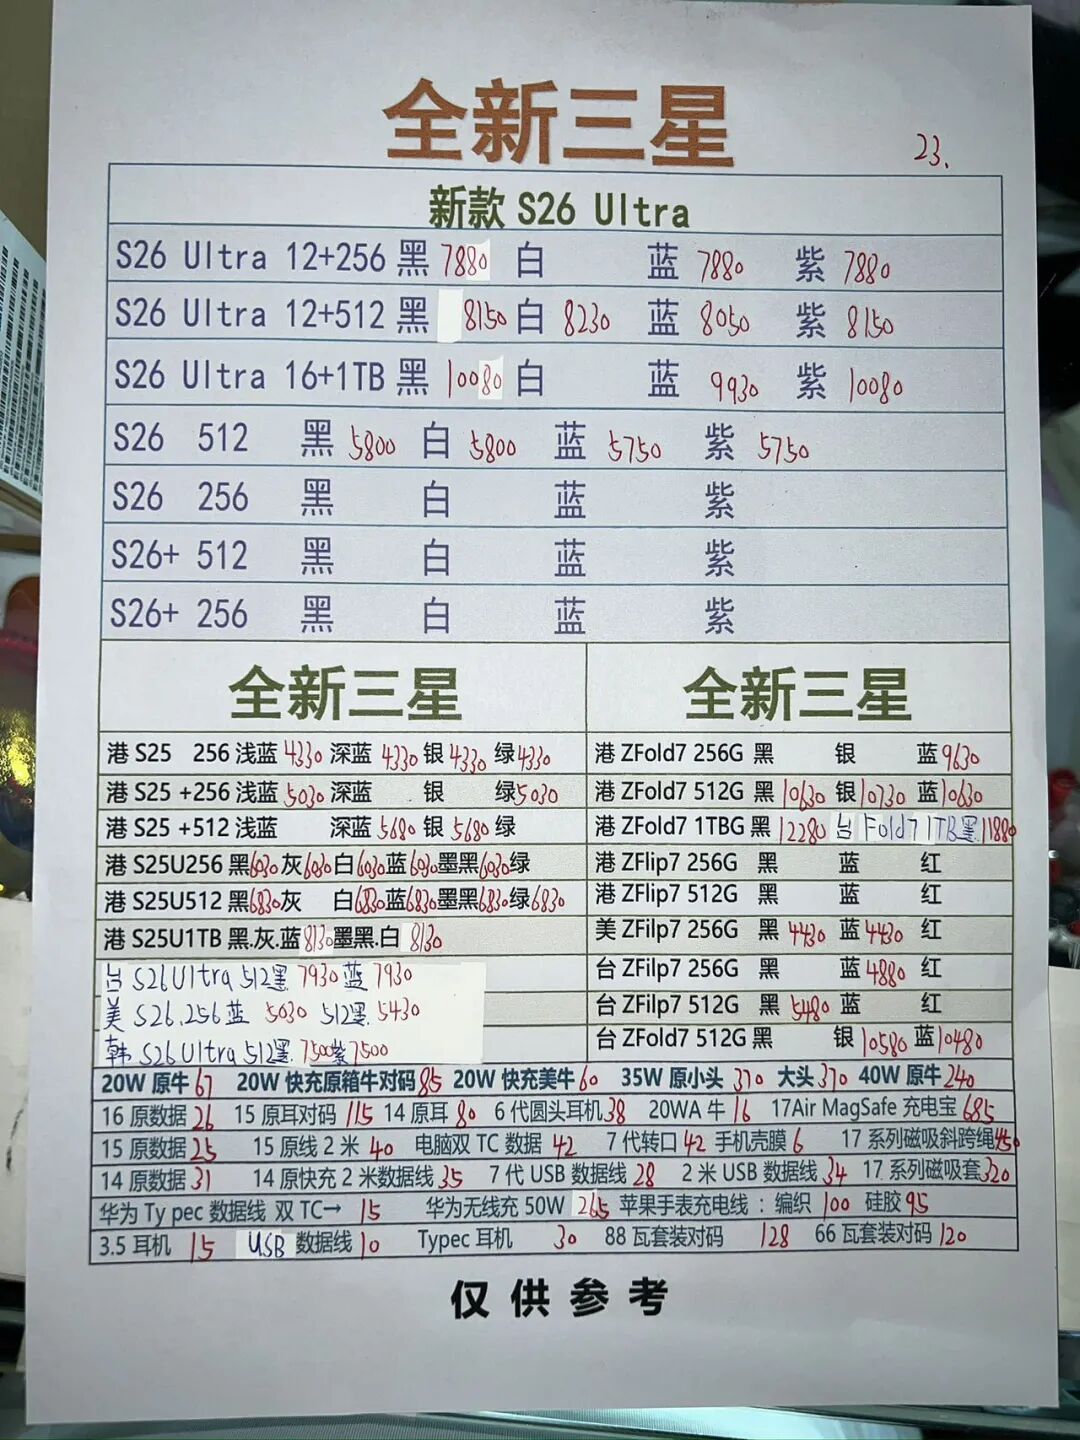 全新三星
23.
新款 S26 Ultra
S26 Ultra 12+256 黑 7880 白 蓝 7880 紫 7880
S26 Ultra 12+512 黑 8150 白 8230 蓝 8050 紫 8150
S26 Ultra 16+1TB 黑 10080 白 蓝 9930 紫 10080
S26 512 黑 5800 白 5800 蓝 5750 紫 5750
S26 256 黑 白 蓝 紫
S26+ 512 黑 白 蓝 紫
S26+ 256 黑 白 蓝 紫
全新三星
港 S25 256 浅蓝 4330 深蓝 4330 银 4330 绿 4330
港 S25 +256 浅蓝 5030 深蓝 银 绿 5030
港 S25 +512 浅蓝 深蓝 5680 银 5680 绿
港 S25U256 黑 6030 灰 6030 白 6030 蓝 6030 墨黑 6030 绿
港 S25U512 黑 6830 灰 白 6830 蓝 6830 墨黑 6830 绿 6830
港 S25U1TB 黑.灰.蓝 8130 墨黑.白 8130
台 S26 Ultra 512黑. 7930 蓝 7930
美 S26.256蓝 5030 512黑. 5430
韩 S26 Ultra 512黑. 7500 紫 7500
全新三星
港 ZFold7 256G 黑 银 蓝 9630
港 ZFold7 512G 黑 10630 银 10730 蓝 10630
港 ZFold7 1TBG 黑 12280 台 Fold7 1TB黑. 11880
港 ZFlip7 256G 黑 蓝 红
港 ZFlip7 512G 黑 蓝 红
美 ZFilp7 256G 黑 4430 蓝 4430 红
台 ZFilp7 256G 黑 蓝 4880 红
台 ZFilp7 512G 黑 5480 蓝 红
台 ZFold7 512G 黑 银 10580 蓝 10480
20W 原牛 67 20W 快充原箱牛对码 85 20W 快充美牛 60 35W 原小头 370 大头 370 40W 原牛 240
16 原数据 26 15 原耳对码 115 14 原耳 80 6 代圆头耳机 38 20WA 牛 16 17Air MagSafe 充电宝 685
15 原数据 25 15 原线 2 米 40 电脑双 TC 数据 42 7 代转口 42 手机壳膜 6 17 系列磁吸斜跨绳 450
14 原数据 31 14 原快充 2 米数据线 35 7 代 USB 数据线 28 2 米 USB 数据线 34 17 系列磁吸套 320
华为 Ty pec 数据线 双 TC→ 15 华为无线充 50W 265 苹果手表充电线 : 编织 100 硅胶 95
3.5 耳机 15 USB 数据线 10 Typec 耳机 30 88 瓦套装对码 128 66 瓦套装对码 120
仅供参考